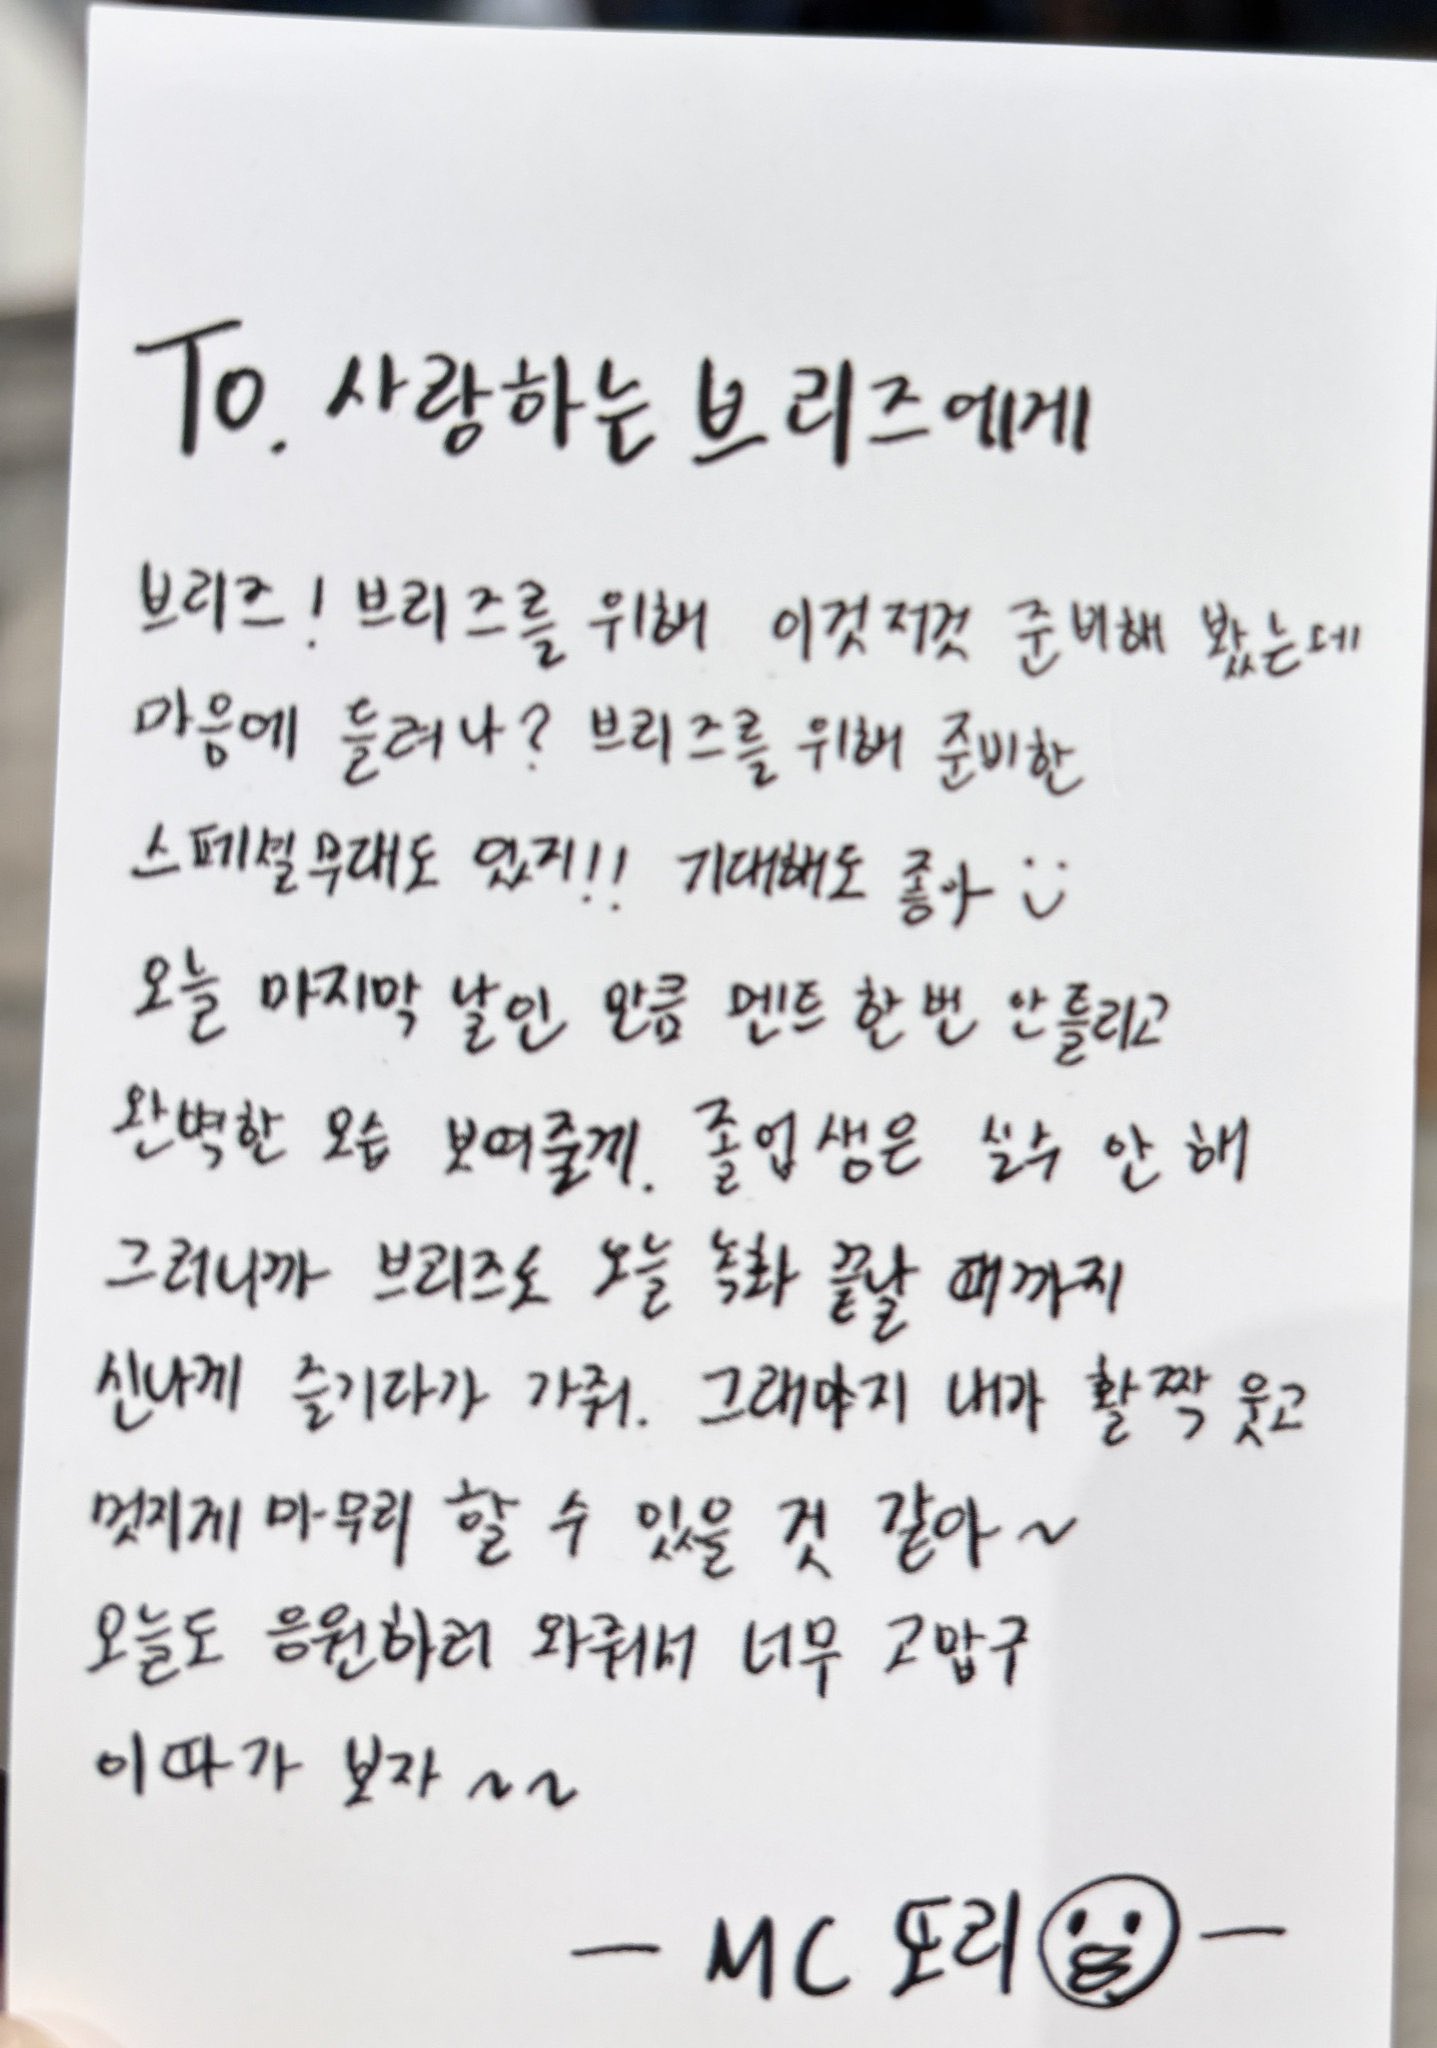 To. 사랑하는 브리즈에게
브리즈! 브리즈를 위해 이것저것 준비해 봤는데
마음에 들려나? 브리즈를 위해 준비한
스페셜무대도 있지!! 기대해도 좋아
오늘 마지막 날인 만큼 멘트 한번 안틀리고
완벽한 모습 보여줄께. 졸업생은 실수 안 해
그러니까 브리즈도 오늘 녹화 끝날 때까지
신나게 즐기다가 가줘. 그래야지 내가 활짝 웃고
멋지게 마무리 할 수 있을 것 같아~
오늘도 응원하러 와줘서 너무 고맙구
이따가 보자~~
— MC 또리 —